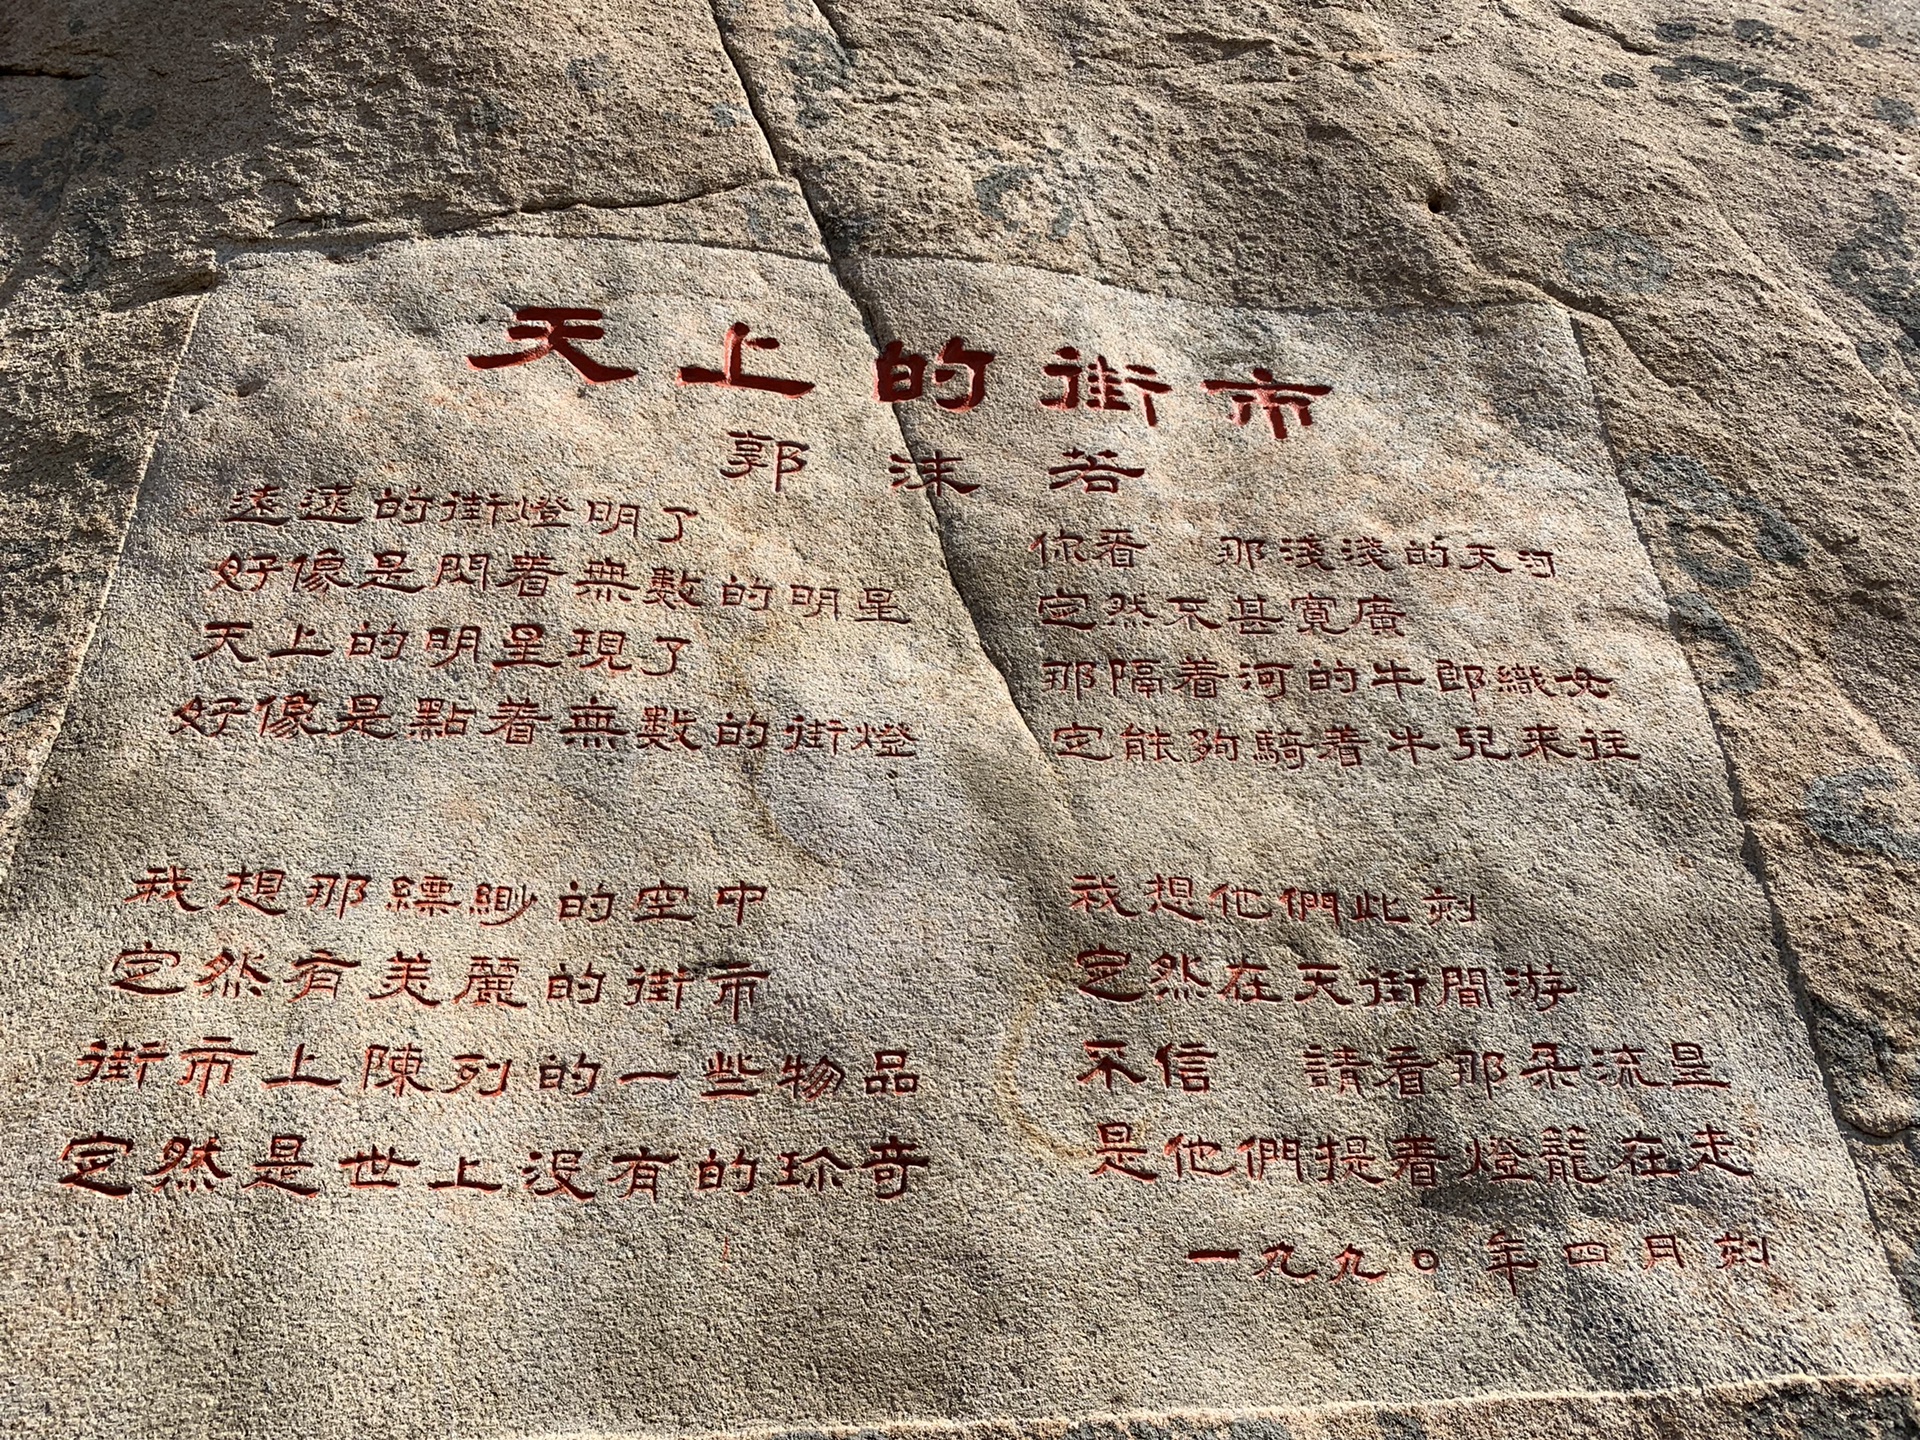 天上的街市
郭沫若
遠遠的街燈明了
好像是閃着無數的明星
天上的明星現了
好像是點着無數的街燈
我想那縹緲的空中
定然有美麗的街市
街市上陳列的一些物品
定然是世上没有的珍奇
你看 那淺淺的天河
定然不甚寬廣
那隔着河的牛郎織女
定能夠騎着牛兒來往
我想他們此刻
定然在天街閒游
不信 請看那朵流星
是他們提着燈籠在走
一九九〇年四月刻